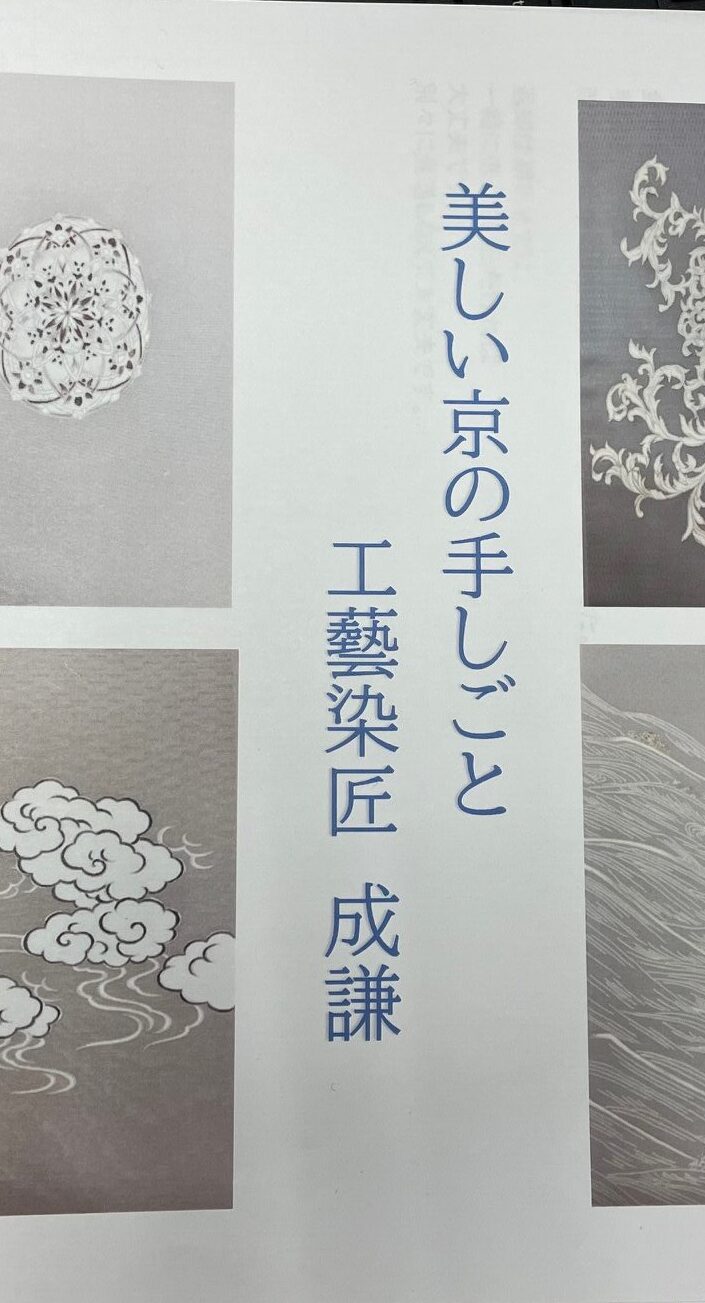 美しい京の手しごと
工藝染匠 成謙